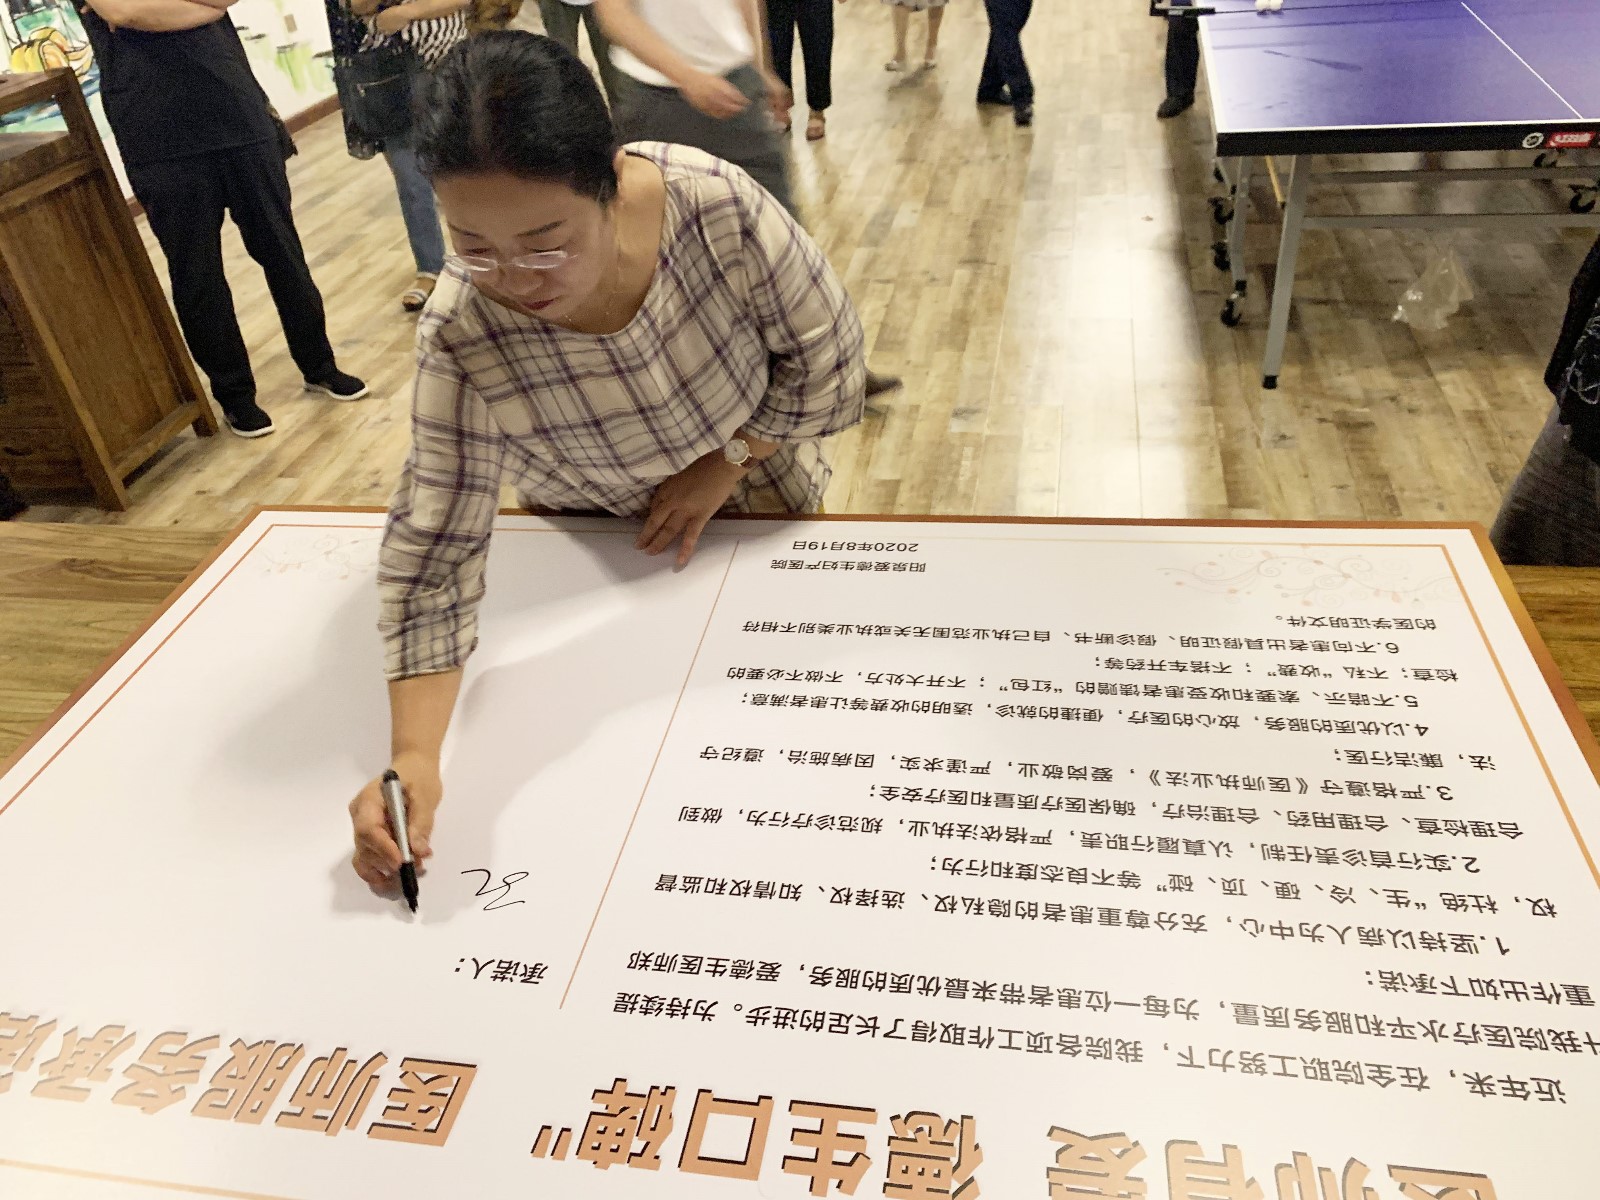 医师有爱 德生口碑” 医师服务承诺
近年来，在全院职工努力下，我院各项工作取得了长足的进步。为持续提
升我院医疗水平和服务质量，为每一位患者带来最优质的服务，爱德生医师郑
重作出如下承诺：
1.坚持以病人为中心，充分尊重患者的隐私权、选择权、知情权和监督
权，杜绝“生、冷、硬、顶、碰”等不良态度和行为；
2.实行首诊责任制，认真履行职责，严格依法执业，规范诊疗行为，做到
合理检查、合理用药、合理治疗，确保医疗质量和医疗安全；
3.严格遵守《医师执业法》，爱岗敬业，严谨求实，因病施治，遵纪守
法，廉洁行医；
4.以优质的服务，放心的医疗，便捷的就诊，透明的收费等让患者满意；
5.不暗示、索要和收受患者馈赠的“红包”；不开大处方，不做不必要的
检查；不私“收费”；不搭车开药等；
6.不向患者出具假证明、假诊断书、自己执业范围无关或执业类别不相符
的医学证明文件。
阳泉爱德生妇产医院
2020年8月19日
承诺人：